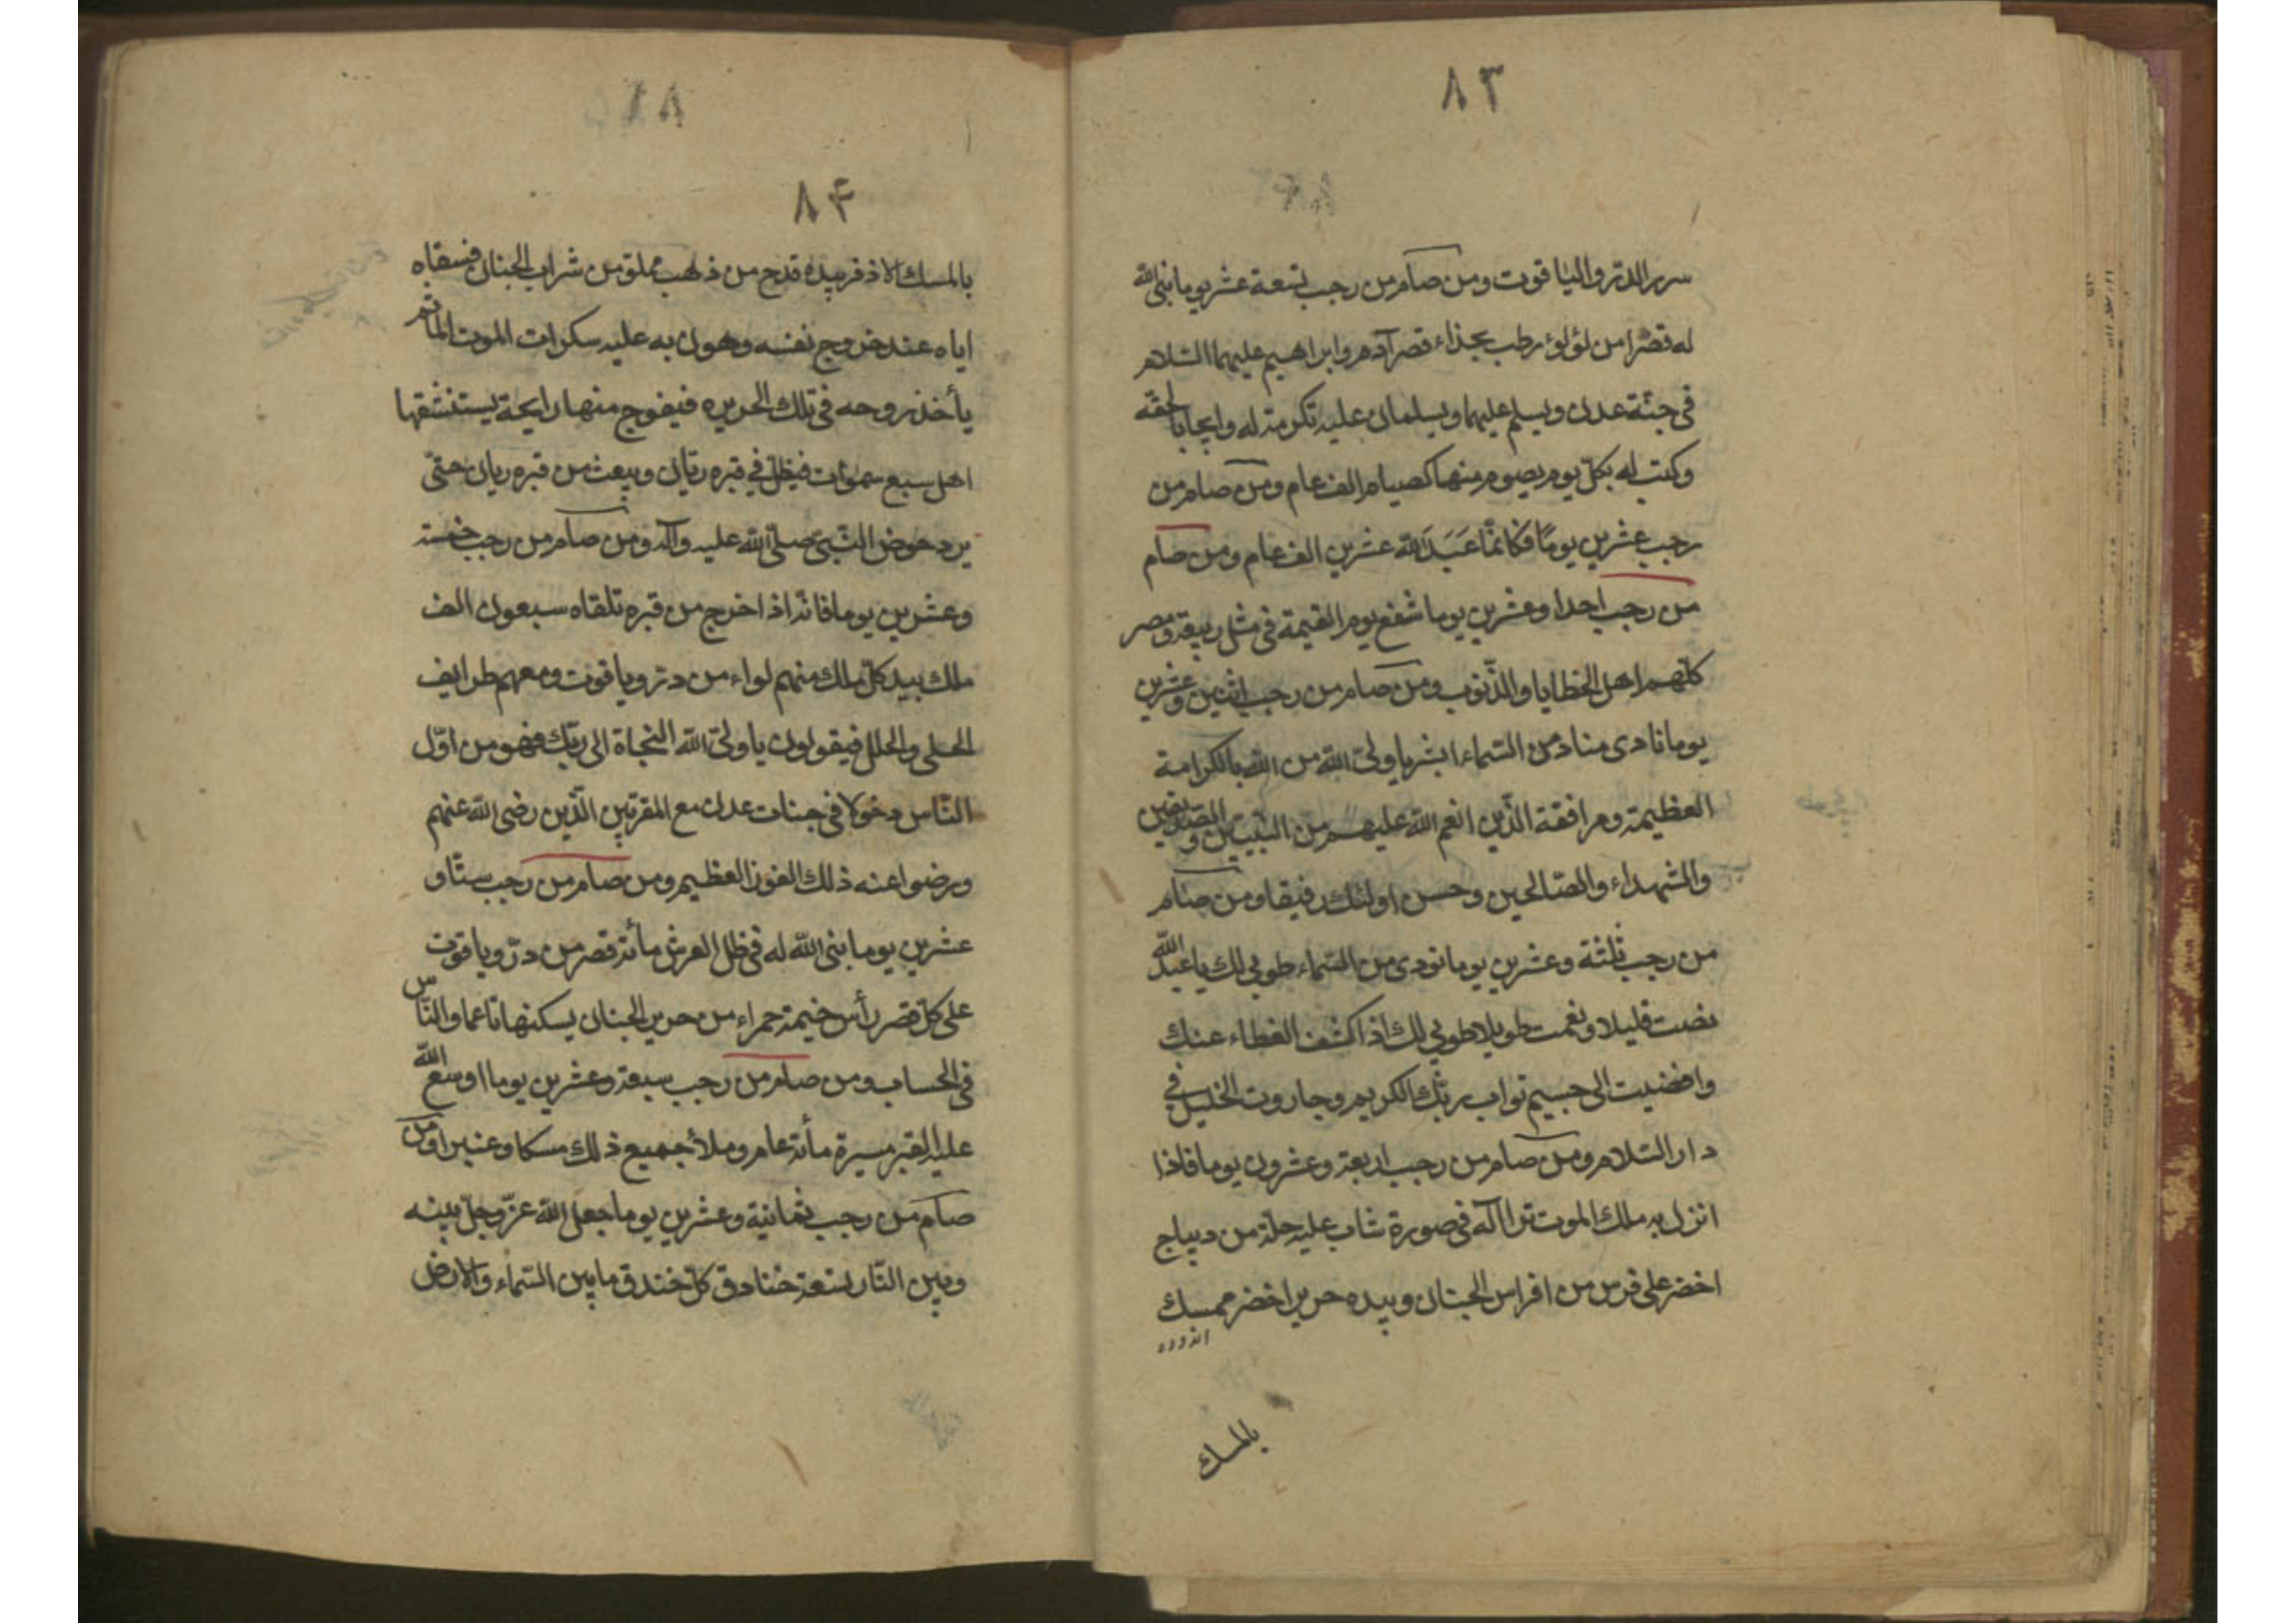 ٨٣
سرر الدرّ والياقوت ومن صام من رجب تسعة عشر يوما بنى الله
له قصرا من لؤلوء رطب بحذاء قصر آدم وابراهيم عليهما السّلام
فى جنّة عدن ويسلم عليهما ويسلمان عليه تكرمة له وايجابا لحقه
وكتب له بكلّ يوم يصوم منها كصيام الف عام ومن صام من
رجب عشرين يومًا فكانمّا عَبَدَ الله عشرين الف عام ومن صام
من رجب احدا وعشرين يوما شفع يوم القيمة فى مثل ربيعة ومضر
كلّهم اهل الخطايا والذّنوب ومن صام من رجب اثنين وعشرين
يوما نادى مناد من السّماء ابشر يا ولىّ الله من الله بالكرامة
العظيمة ومرافقة الّذين انعم الله عليهم من النّبيّين والصّديقين
والشهداء والصّالحين وحسن اولئك رفيقا ومن صام
من رجب ثلثة وعشرين يوما نودى من السّماء طوبى لك يا عبد الله
نصبت قليلا ونعمت طويلا طوبى لك اذا كشف الغطاء عنك
وافضيت الى جسيم ثواب ربّك الكريم وجاروت الخليل فى
دار السّلام ومن صام من رجب اربعة وعشرون يوما فاذا
انزل به ملك الموت ترا اله فى صورة شاب عليه حلة من ديباج
اخضر على فرس من افراس الجنان وبيده حرير اخضر ممسك
بالمسك
٨۴
بالمسك الاذفر بيده قدح من ذهب مملؤ من شراب الجنان فسقاه
اياه عند خروج نفسه وهون به عليه سكرات الموت ثم
يأخذ روحه فى تلك الحريره فيفوج منها رايحة يستنشقها
اهل سبع سموات فيظلّ في قبره ريّان ويبعث من قبره ريان حتىّ
يرد حوض النّبىّ صلّى الله عليه وآله ومن صام من رجب خمسة
وعشرين يوما فانّه اذا خرج من قبره تلقاه سبعون الف
ملك بيد كلّ ملك منهم لواء من درّ وياقوت ومعهم طرايف
الحلى والحلل فيقولون يا ولىّ الله النجاة الى ربّك فهو من اوّل
النّاس دخولا فى جنات عدن مع المقربّين الّذين رضى الله عنهم
ورضوا عنه ذلك الفوز العظيم ومن صام من رجب ستّا و
عشرين يوما بنى الله له فى ظل العرش مأئة قصر من درّ وياقوت
على كلّ قصر رأس خيمة حمراء من حرير الجنان يسكنها ناعما والنّاس
فى الحساب ومن صام من رجب سبعة وعشرين يوما اوسع الله
عليه القبر مسيرة مأئة عام وملأ جميع ذلك مسكا وعنبرا ومن
صام من رجب ثمانية وعشرين يوما جعل الله عزّ وجلّ بينه
وبين النّار تسعة خنادق كلّ خندق ما بين السّماء والارض